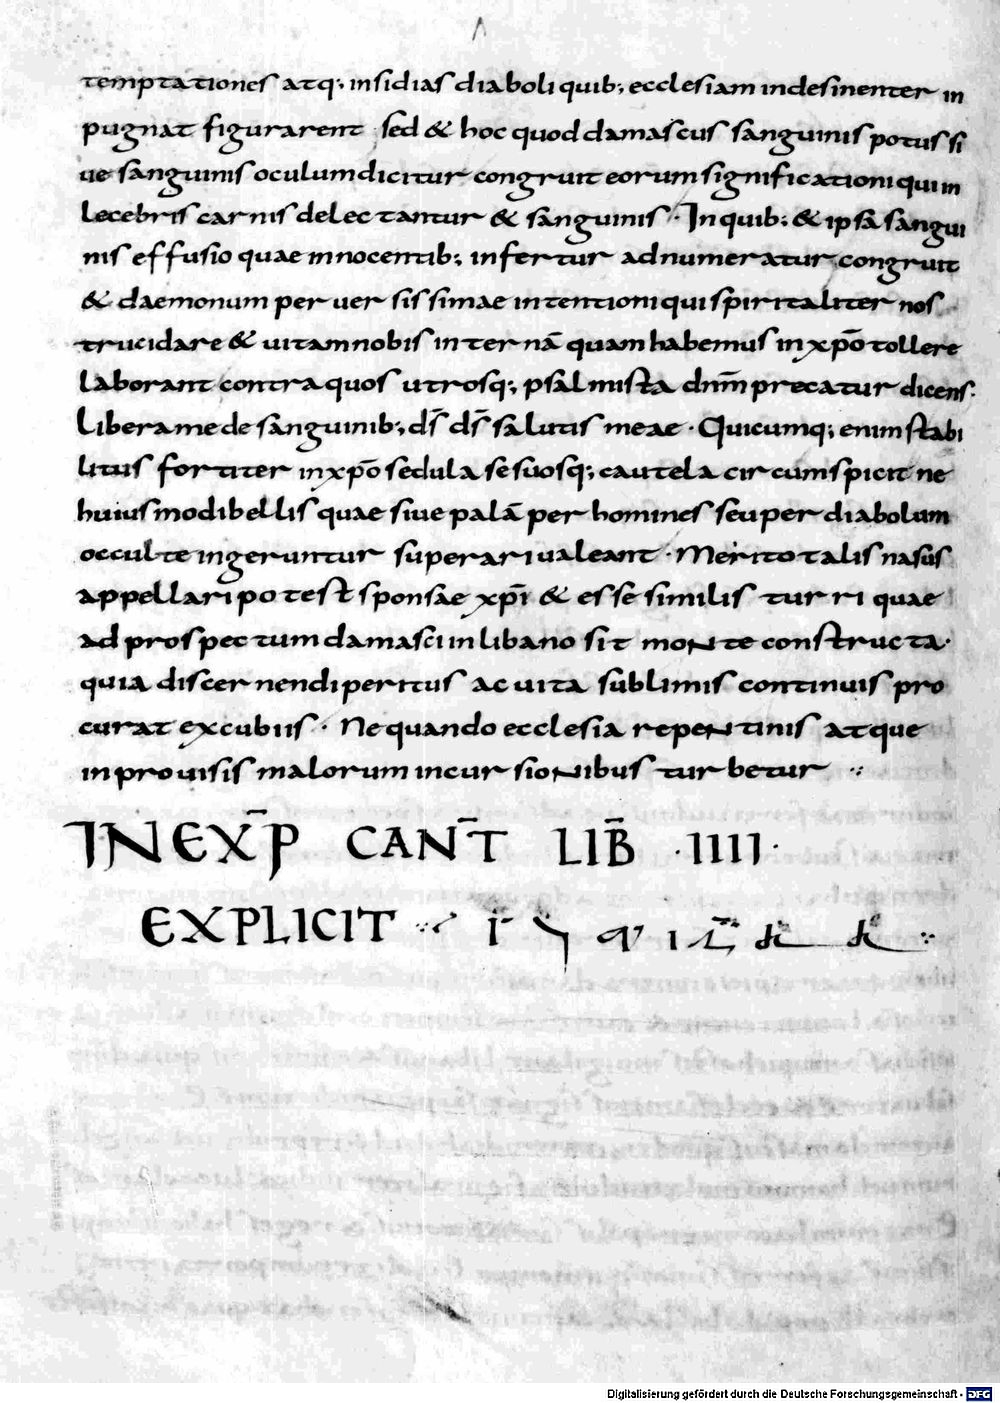 temptationes atq; insidias diaboli quib; ecclesiam indesinenter in
pugnat figurarent sed & hoc quod damascus sanguinis potus si
ue sanguinis osculum dicitur congruit eorum significationi qui in
lecebris carnis delectantur & sanguinis · In quib; & ipsa sangui
nis effusio quae innocentib; infertur adnumeratur congruit
& daemonum peruersissimae intentioni qui spiritaliter nos
trucidare & uitam nobis internā quam habemus in xp̄o tollere
laborant contra quos utrosq; psalmista dnm̄ precatur dicens·
Libera me de sanguinib; ds̄ ds̄ salutis meae · Quicumq; enim stabi
litus fortiter in xp̄o sedula se suosq; cautela circumspicit ne
huiusmodi bellis quae siue palā per homines seu per diabolum
occulte ingeruntur superari ualeant · Merito talis nasus
appellari potest sponsae xp̄i & esse similis turri quae
ad prospectum damasci in libano sit monte constructa·
quia discernendi peritus ac uita sublimis continuis pro
curat excubiis · Ne quando ecclesia repentinis atque
inprouisis malorum incursionibus turbetur
IN EXP̄ CANT̄ LIB̄ ·IIII·
EXPLICIT